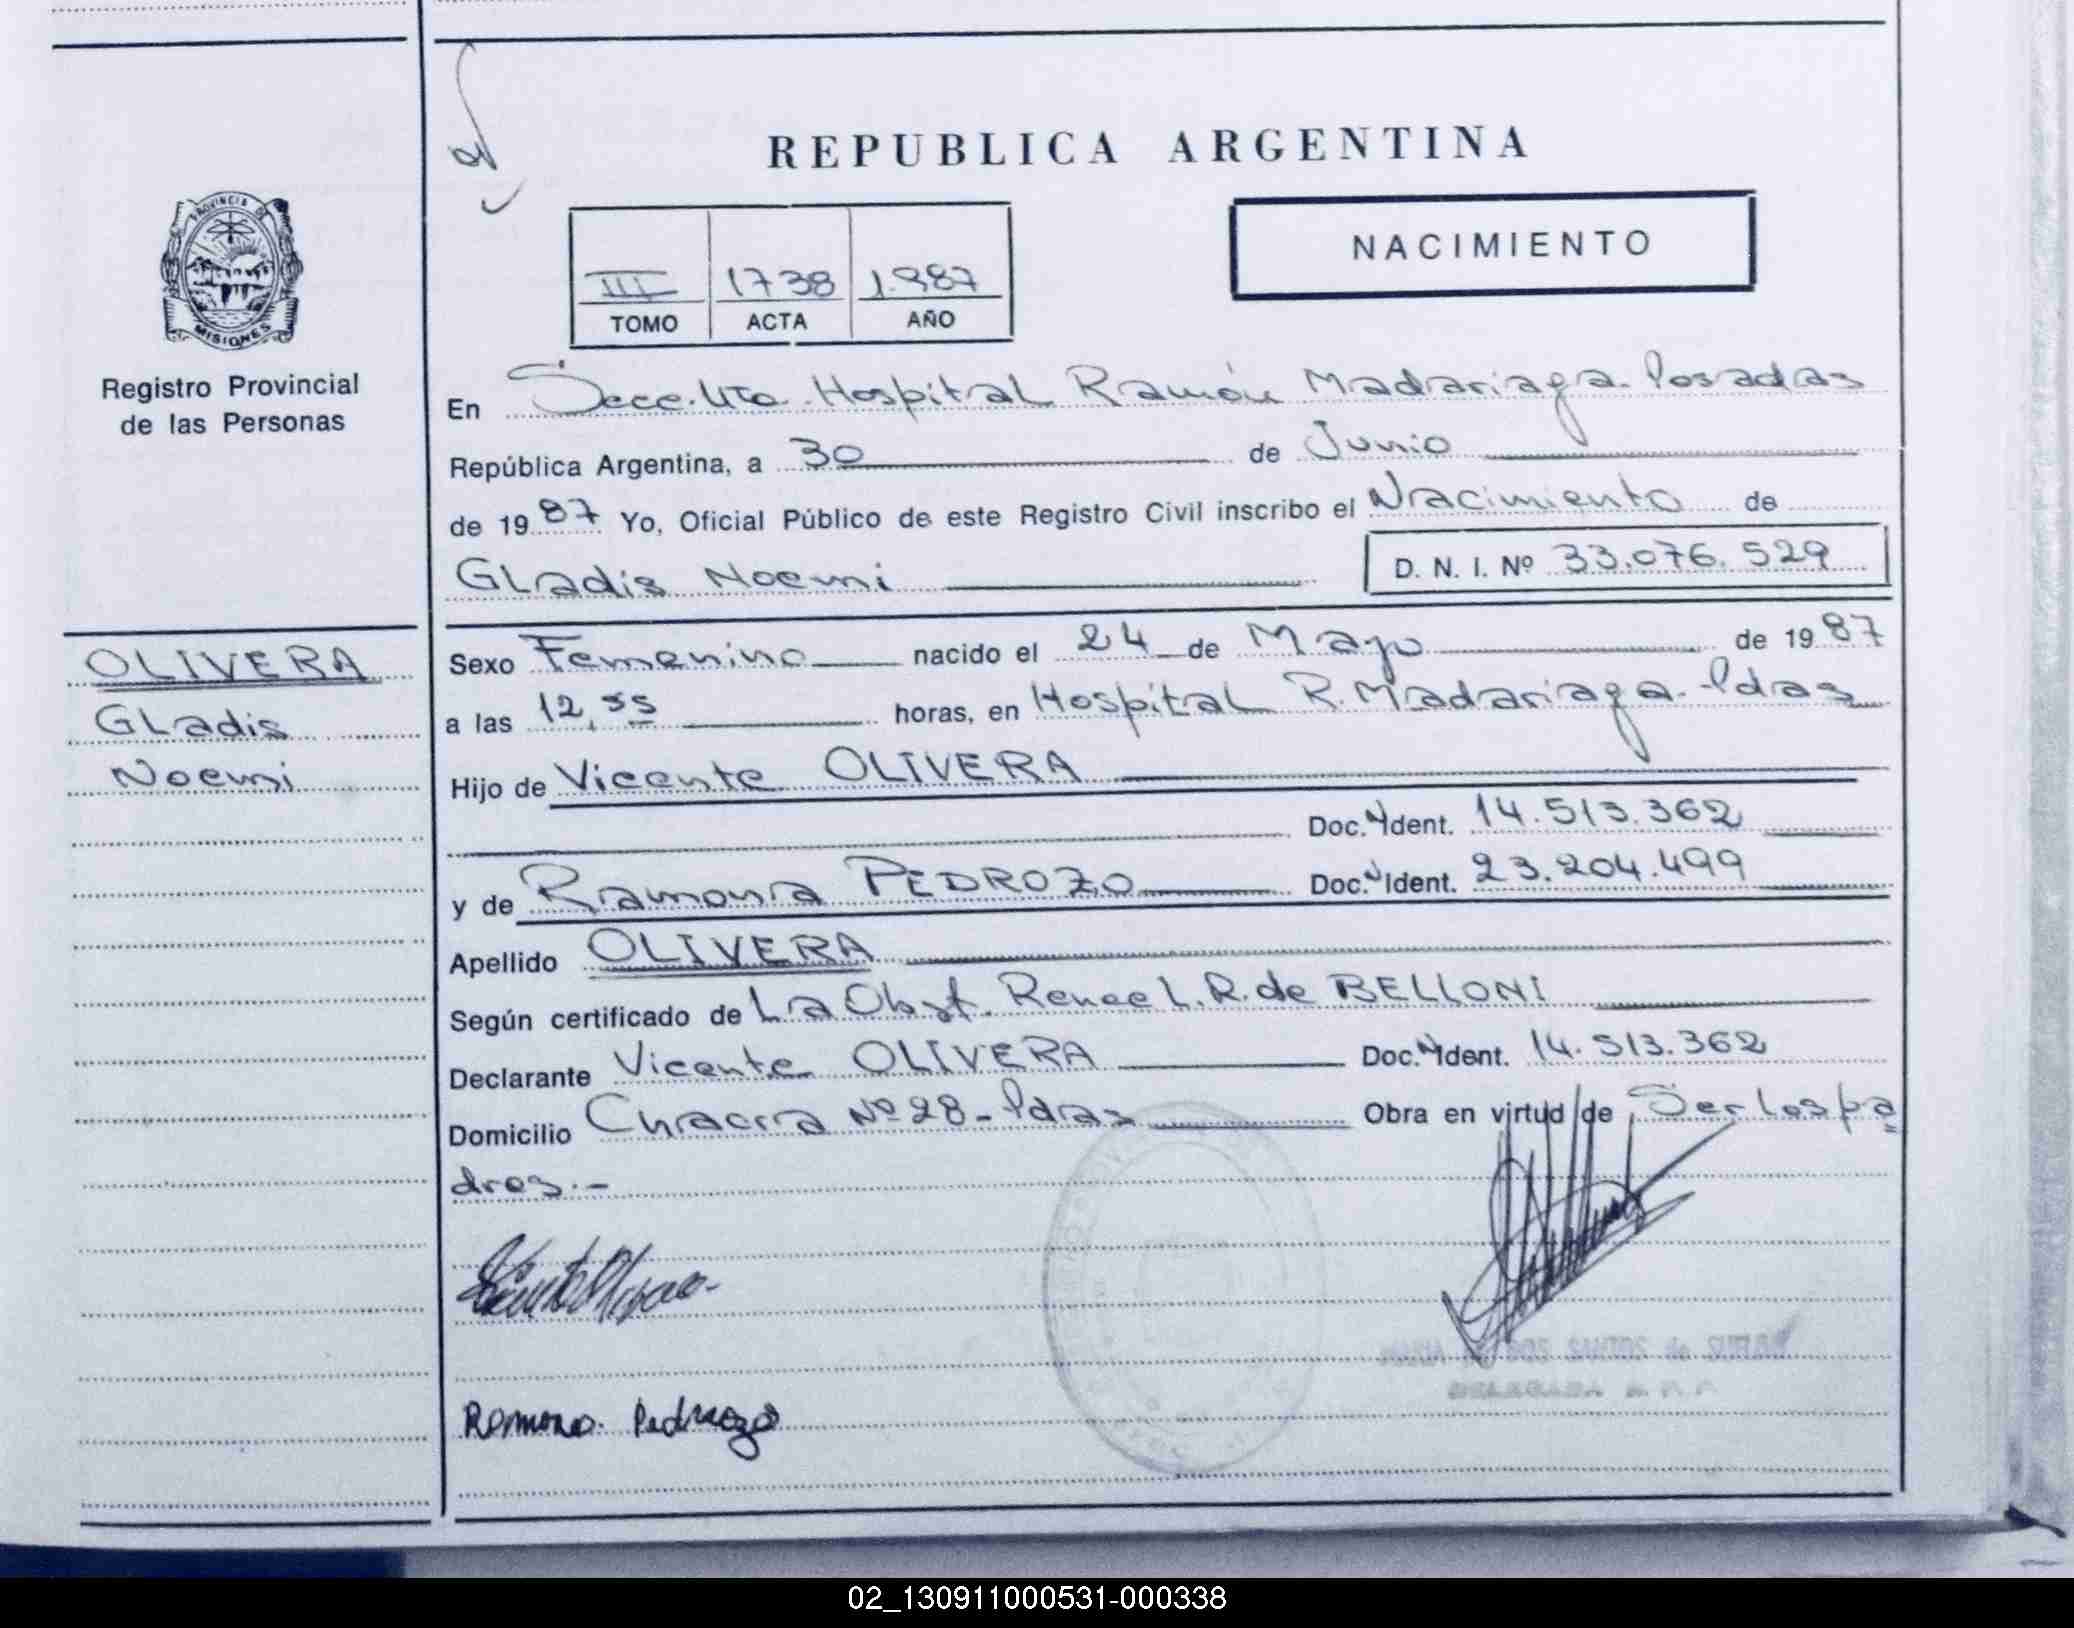 REPUBLICA ARGENTINA
PROVINCIA DE
MISIONES
Registro Provincial
de las Personas
III 1738 1.987
TOMO ACTA AÑO
NACIMIENTO
En Hospital Ramón Madariaga. Posadas
República Argentina, a 30 de Junio
de 1987 Yo, Oficial Público de este Registro Civil inscribo el Nacimiento de
Gladis Noemi D. N. I. Nº 33.076.529
OLIVERA
Gladis
Noemi
Sexo Femenino nacido el 24 de Mayo de 1987
a las 12,55 horas, en Hospital R. Madariaga-Pdas
Hijo de Vicente OLIVERA
Doc. Ident. 14.513.362
y de Ramona PEDROZO Doc. Ident. 23.204.499
Apellido OLIVERA
Según certificado de La Obst. Renee L. R. de BELLONI
Declarante Vicente OLIVERA Doc. Ident. 14.513.362
Domicilio Chacra Nº 28-Pdas Obra en virtud de Ser los pa
dres.-
Ramona Pedrozo
02_130911000531-000338